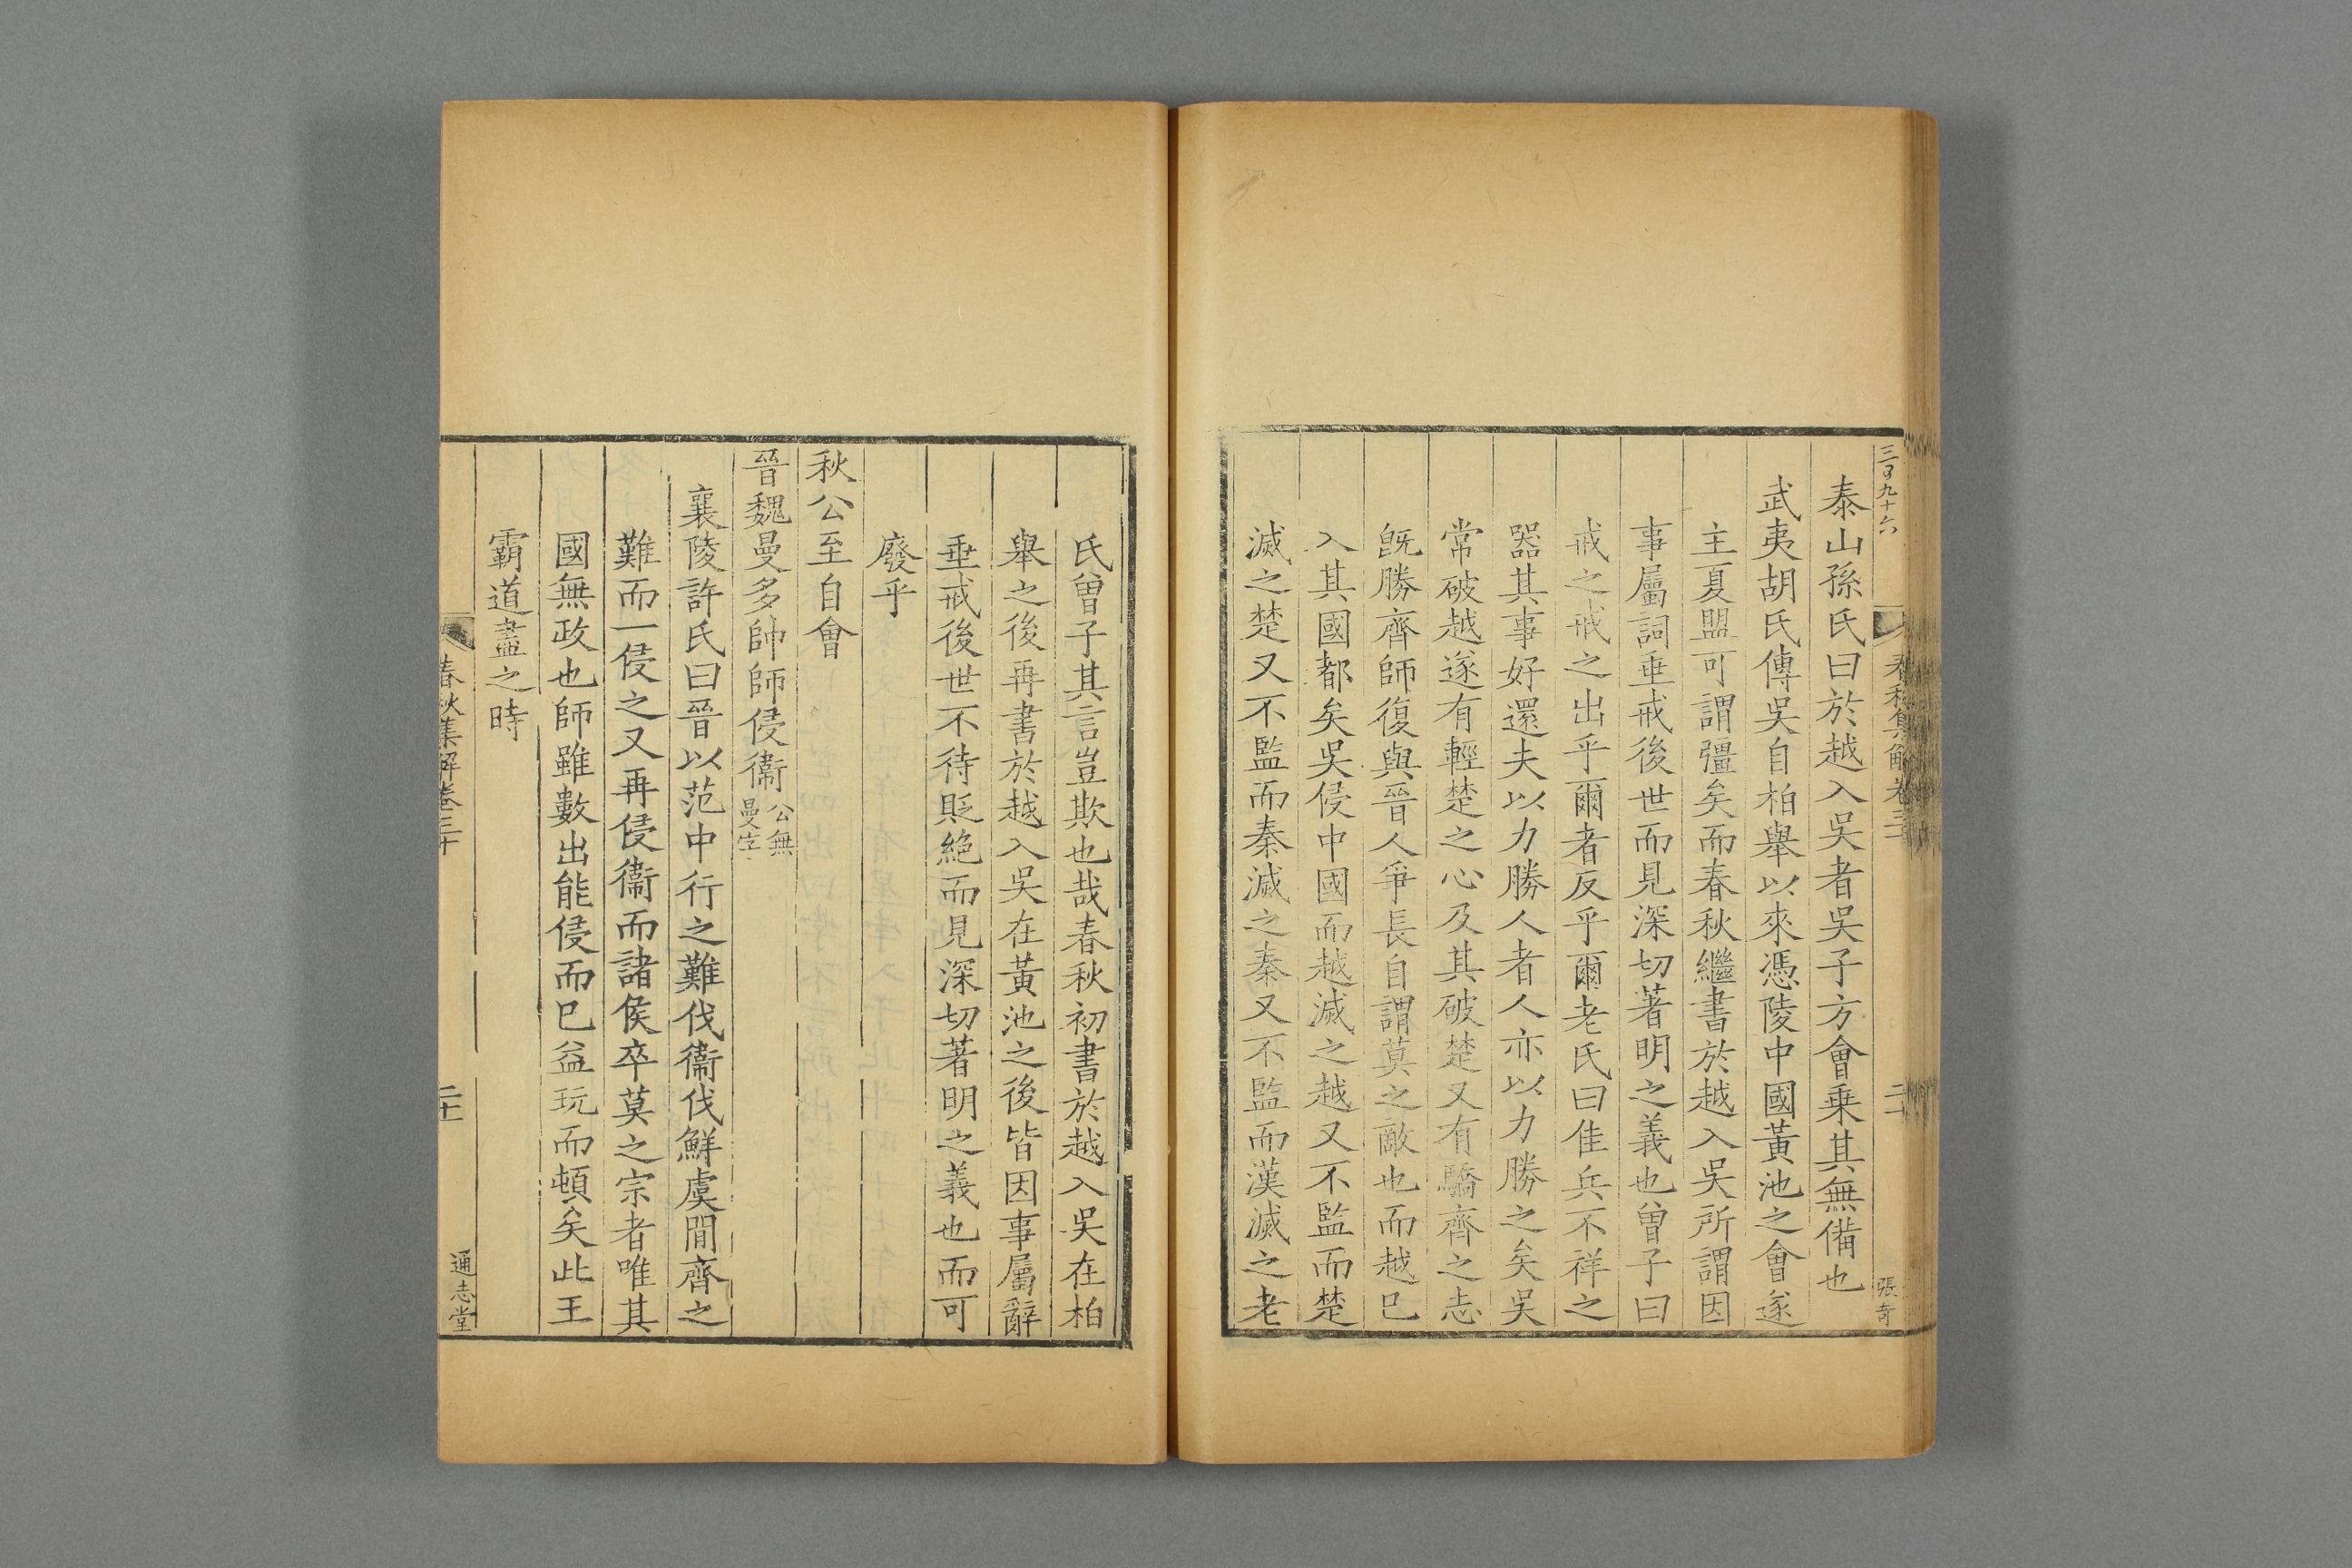 三百九十六
春秋集解卷三十
張奇
泰山孫氏曰於越入吳者吳子方會乗其無備也
武夷胡氏傳吳自柏舉以來憑陵中國黃池之會遂
主夏盟可謂彊矣而春秋繼書於越入吳所謂因
事屬詞垂戒後世而見深切著明之義也曾子曰
戒之戒之出乎爾者反乎爾老氏曰佳兵不祥之
器其事好還夫以力勝人者人亦以力勝之矣吳
常破越遂有輕楚之心及其破楚又有驕齊之志
旣勝齊師復與晉人爭長自謂莫之敵也而越已
入其國都矣吳侵中國而越滅之越又不監而楚
滅之楚又不監而秦滅之秦又不監而漢滅之老
氏曾子其言豈欺也哉春秋初書於越入吳在柏
舉之後再書於越入吳在黃池之後皆因事屬辭
垂戒後世不待貶絕而見深切著明之義也而可
廢乎
秋公至自會
晉魏曼多帥師侵衞公無曼字
襄陵許氏曰晉以范中行之難伐衞伐鮮虞間齊之
難而一侵之又再侵衞而諸侯卒莫之宗者唯其
國無政也師雖數出能侵而已益玩而頓矣此王
霸道盡之時
春秋集解卷三十
通志堂